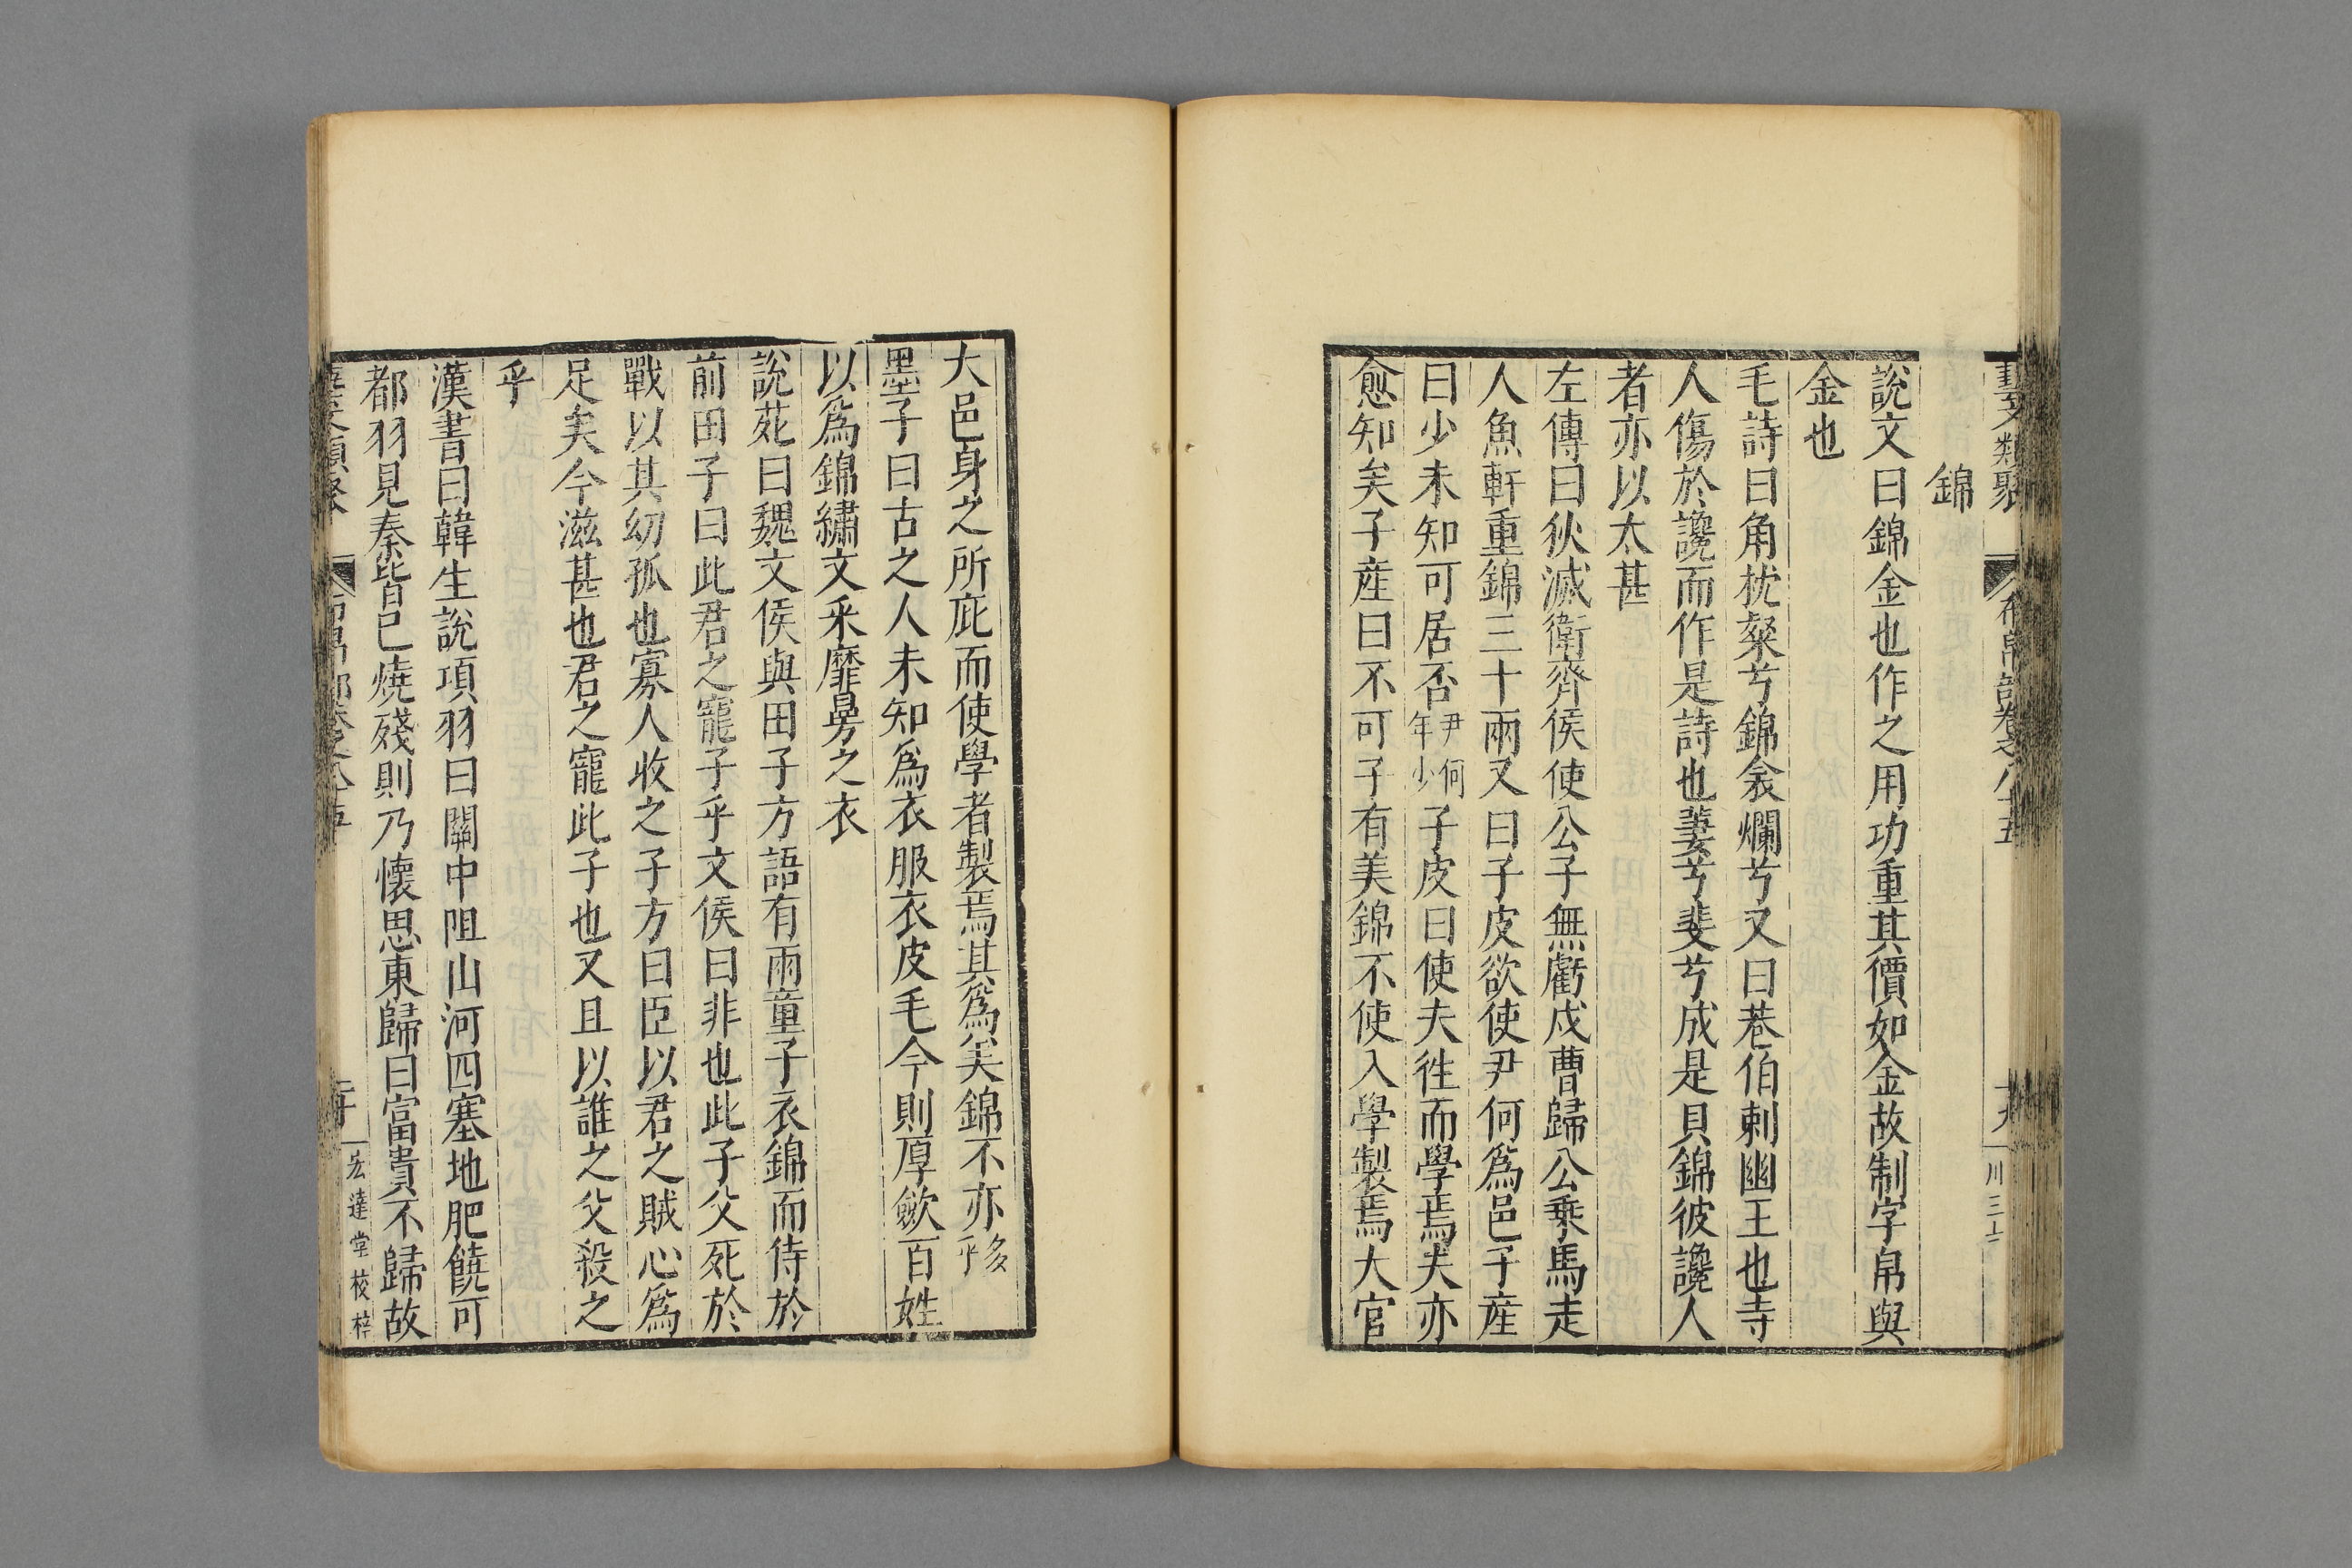 藝文類聚 布帛部卷之八十五 十九 川三十
錦
說文曰錦金也作之用功重其價如金故制字帛與
金也
毛詩曰角枕粲兮錦衾爛兮又曰巷伯刺幽王也寺
人傷於讒而作是詩也萋兮斐兮成是貝錦彼讒人
者亦以太甚
左傳曰狄滅衛齊侯使公子無虧戍曹歸公乗馬走
人魚軒重錦三十兩又曰子皮欲使尹何爲邑子産
曰少未知可居否尹何年少子皮曰使夫徃而學焉夫亦
愈知矣子産曰不可子有美錦不使入學製焉大官
大邑身之所庇而使學者製焉其爲美錦不亦多乎
墨子曰古之人未知爲衣服衣皮毛今則厚歛百姓
以爲錦繡文采靡曼之衣
說苑曰魏文侯與田子方語有兩童子衣錦而侍於
前田子曰此君之寵子乎文侯曰非也此子父死於
戰以其幼孤也寡人收之子方曰臣以君之賊心爲
足矣今滋甚也君之寵此子也又且以誰之父殺之
乎
漢書曰韓生說項羽曰關中阻山河四塞地肥饒可
都羽見秦皆已燒殘則乃懷思東歸曰富貴不歸故
宏達堂校梓